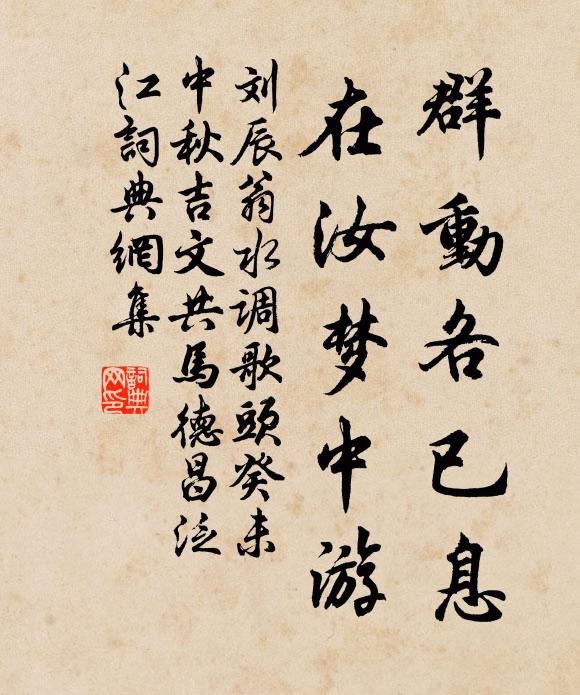 群動各已息
在汝梦中游
刘辰翁水调歌頭癸未
中秋吉文共馬德昌泛
江詞典網集
詞典
网印